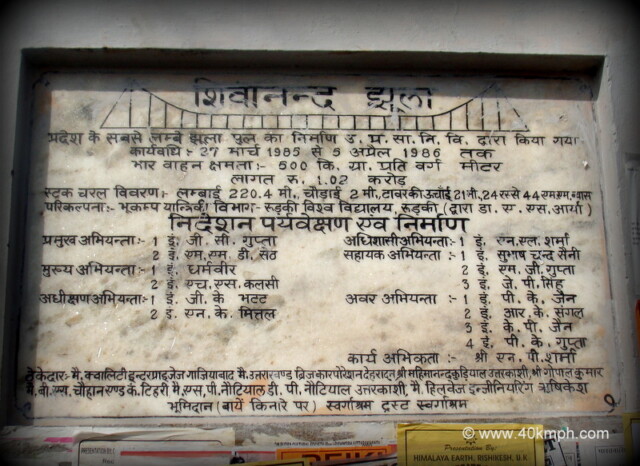 शिवानन्द झूला
प्रदेश के सबसे लम्बे झूला पुल का निर्माण उ. प्र. सा. नि. वि. द्वारा किया गया
कार्यवधि :- 27 मार्च 1985 से 5 अप्रैल 1986 तक
भार वाहन क्षमता :- 500 कि. ग्रा. प्रति वर्ग मीटर
लागत रु. 1.02 करोड़
स्ट्रक्चरल विवरण :- लम्बाई 220.4 मी., चौड़ाई 2 मी., टावर की ऊंचाई 21 मी., 24 रस्से 44 एम.एम. व्यास
परिकल्पना :- भूकम्प यान्त्रिकी विभाग - रूड़की विश्व विद्यालय, रूड़की (द्वारा डा. ए. एस. आर्या)
निर्देशन पर्यवेक्षण एवं निर्माण
प्रमुख अभियन्ता :- 1 इं. जी. सी. गुप्ता
2 इं. एम. एम. डी. सेठ
मुख्य अभियन्ता :- 1 इं. धर्मवीर
2 इं. एच. एस. कलसी
अधीक्षण अभियन्ता :- 1 इं. जी. के भटट
2 इं. एन. के. मित्तल
अधिशासी अभियन्ता :- 1 इं. एन. एल. शर्मा
सहायक अभियन्ता :- 1 इं. सुभाष चन्द्र सैनी
2 इं. एम. जी. गुप्ता
3 इं. जे. पी. सिंह
अवर अभियन्ता :- 1 इं. पी. के. जैन
2 इं. आर. के. संगल
3 इं. के. पी. जैन
4 इं. पी. के. गुप्ता
कार्य अभिकर्ता :- श्री एन. पी. शर्मा
ठेकेदार :- मै. क्वालिटी इन्टरप्राइजेज गाजियाबाद मै. उत्तराखण्ड ब्रिज कारपोरेशन देहरादून, श्री महिमानन्द कुड़ियाल उत्तरकाशी, श्री गोपाल कुमार
मै. बी. एस. चौहान एण्ड कं. टिहरी मै. एस. पी. नौटियाल डी. पी. नौटियाल उत्तरकाशी, मै. हिलवेज इन्जीनियरिंग ऋषिकेश
भूमिदान (बायें किनारे पर) स्वर्गाश्रम ट्रस्ट स्वर्गाश्रम
Presentation By:
HIMALAYA EARTH, RISHIKESH, U.K
© www.40kmph.com